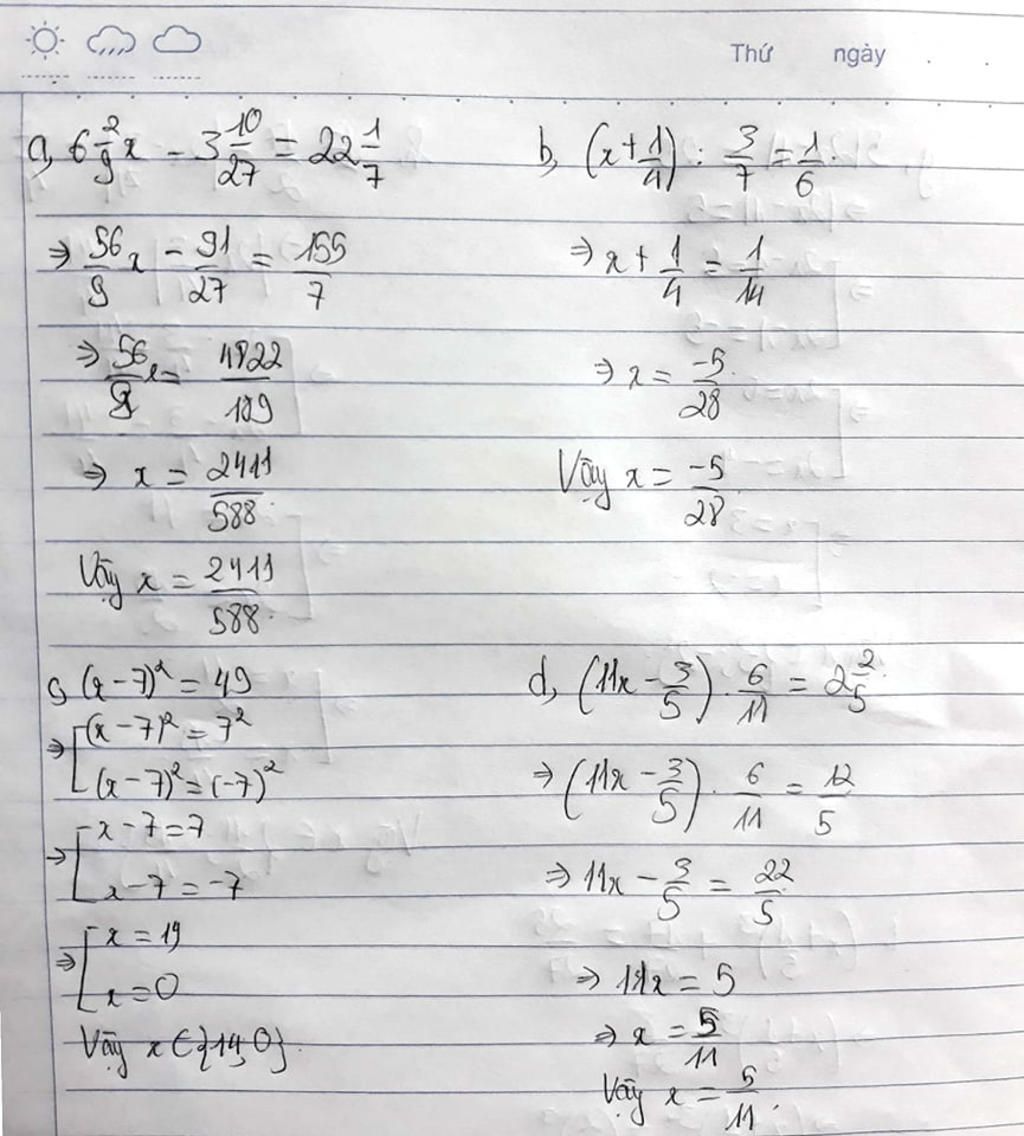 Thứ ngày
a, 6 2/9 x - 3 10/27 = 22 1/7
⇒ 56/9 x - 91/27 = 155/7
⇒ 56/9 x = 4822/189
⇒ x = 2411/588
Vậy x = 2411/588
b, (x + 1/4) : 3/7 = 1/6
⇒ x + 1/4 = 1/14
⇒ x = -5/28
Vậy x = -5/28
c, (x - 7)² = 49
⇒ [ (x - 7)² = 7²
(x - 7)² = (-7)²
⇒ [ x - 7 = 7
x - 7 = -7
⇒ [ x = 14
x = 0
Vậy x ∈ {14, 0}
d, (11x - 3/5) . 6/11 = 2 2/5
⇒ (11x - 3/5) . 6/11 = 12/5
⇒ 11x - 3/5 = 22/5
⇒ 11x = 5
⇒ x = 5/11
Vậy x = 5/11.